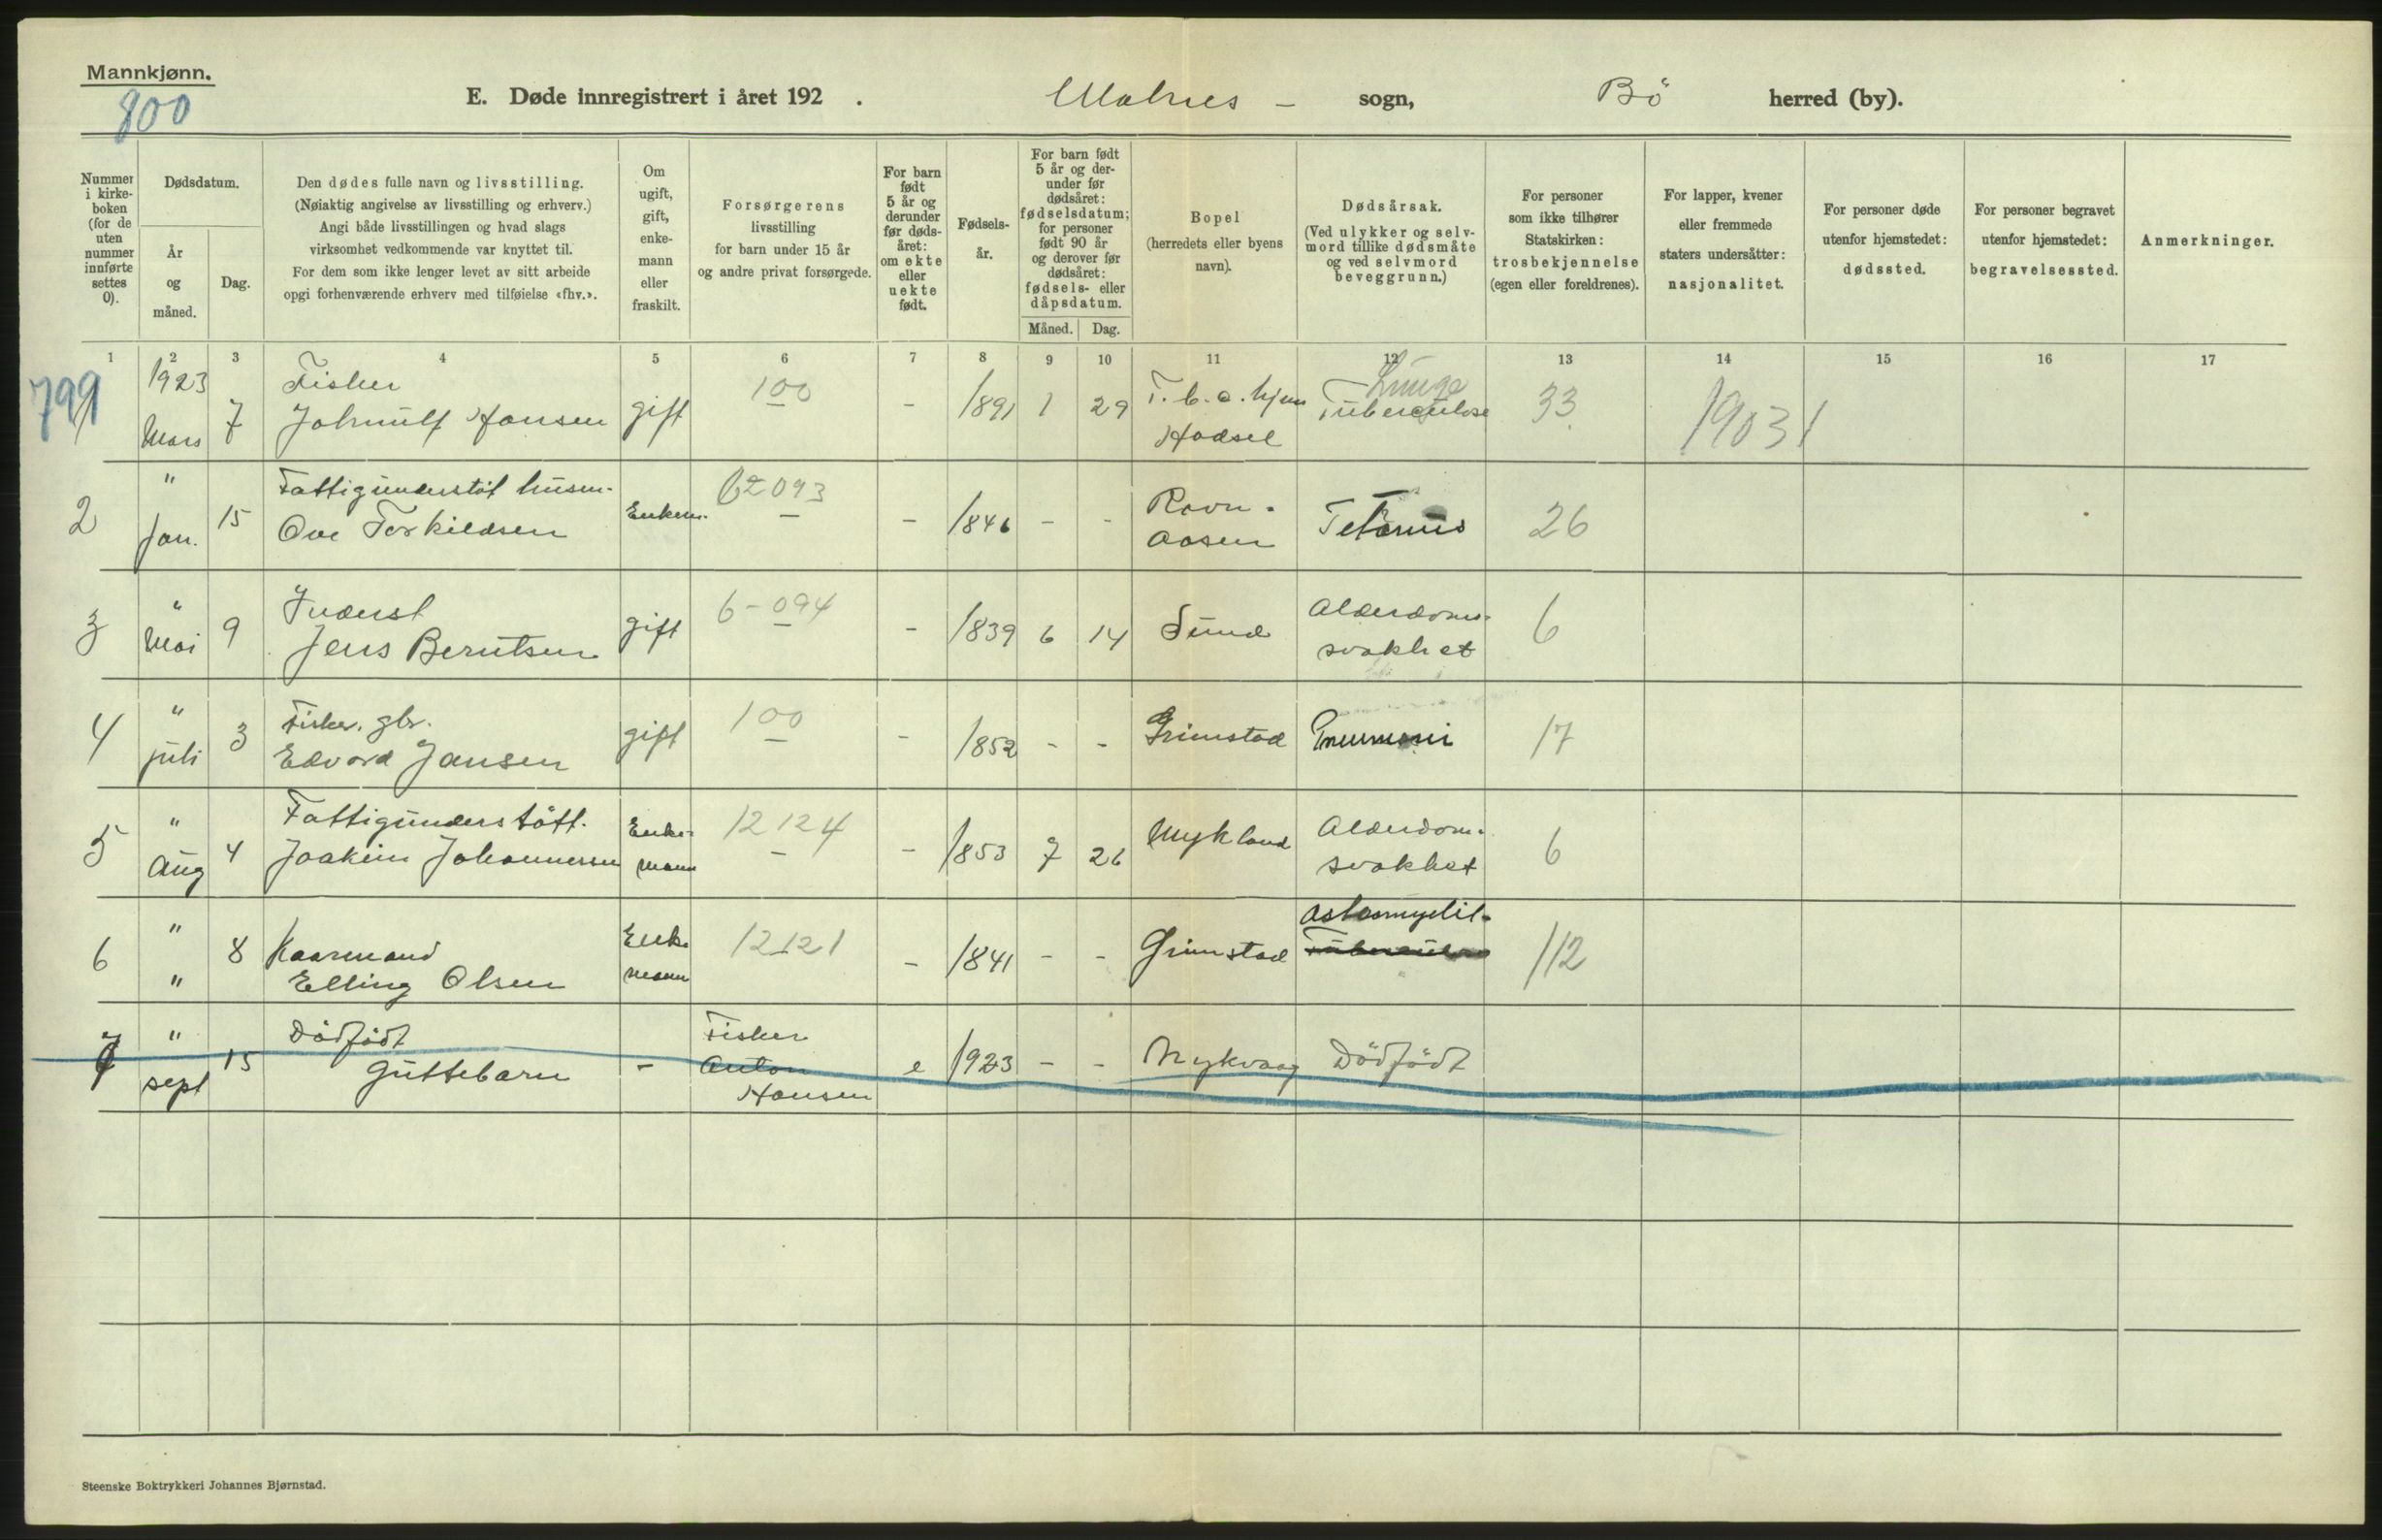 Mannkjønn.
800
E. Døde innregistrert i året 192 .
Malnes - sogn,
Bö herred (by).
Nummer i kirke-boken (for de uten nummer innførte settes 0).
Dødsdatum.
År og måned.
Dag.
Den dødes fulle navn og livsstilling.
(Nøiaktig angivelse av livsstilling og erhverv.)
Angi både livsstillingen og hvad slags
virksomhet vedkommende var knyttet til.
For dem som ikke lenger levet av sitt arbeide
opgi forhenværende erhverv med tilføielse «fhv.».
Om ugift, gift, enke-mann eller fraskilt.
Forsørgerens
livsstilling
for barn under 15 år
og andre privat forsørgede.
For barn født 5 år og derunder før døds-året: om ekte eller uekte født.
Fødsels-år.
For barn født 5 år og der-under før dødsåret: fødselsdatum; for personer født 90 år og derover før dødsåret: fødsels- eller dåpsdatum.
Måned. Dag.
Bopel
(herredets eller byens
navn).
Dødsårsak.
(Ved ulykker og selv-
mord tillike dødsmåte
og ved selvmord
beveggrunn.)
For personer
som ikke tilhører
Statskirken:
trosbekjennelse
(egen eller foreldrenes).
For lapper, kvener
eller fremmede
staters undersåtter:
nasjonalitet.
For personer døde
utenfor hjemstedet:
dødssted.
For personer begravet
utenfor hjemstedet:
begravelsessted.
Anmerkninger.
1 2 3 4 5 6 7 8 9 10 11 12 13 14 15 16 17
799
1923 Fisker 100 Lunge
Mars 7 Johnulf Hansen gift - 1891 1 29 T.b.c. hjem Tuberculose 33 19031
Hadsel
" Fattigunderstöt husm. 62093 Ravn-
2 Jan. 15 Ove Torkildsen Enkem. - - 1846 - - Aasen Tetanus 26
" Inderst 6-094 Alderdoms-
3 Mai 9 Jens Berntsen gift - - 1839 6 14 Sund svakhet 6
" Fisker. gbr. 100
4 juli 3 Edvard Jansen gift - 1852 - - Grimstad Pneumoni 17
" Fattigunderstött. Enke- 12124 Alderdom-
5 Aug 4 Joakim Johannessen mann - - 1853 7 26 Mykland svakhet 6
" Kaarmand Enke 12121 Osteomyelit-
6 " 8 Elling Olsen mann - 1841 - - Grimstad Tuberculose 112
" Dödfödt Fisker
7 sept 15 Guttebarn - Anton e 1923 - - Nykvaag Dödfödt
Hansen
Steenske Boktrykkeri Johannes Bjørnstad.